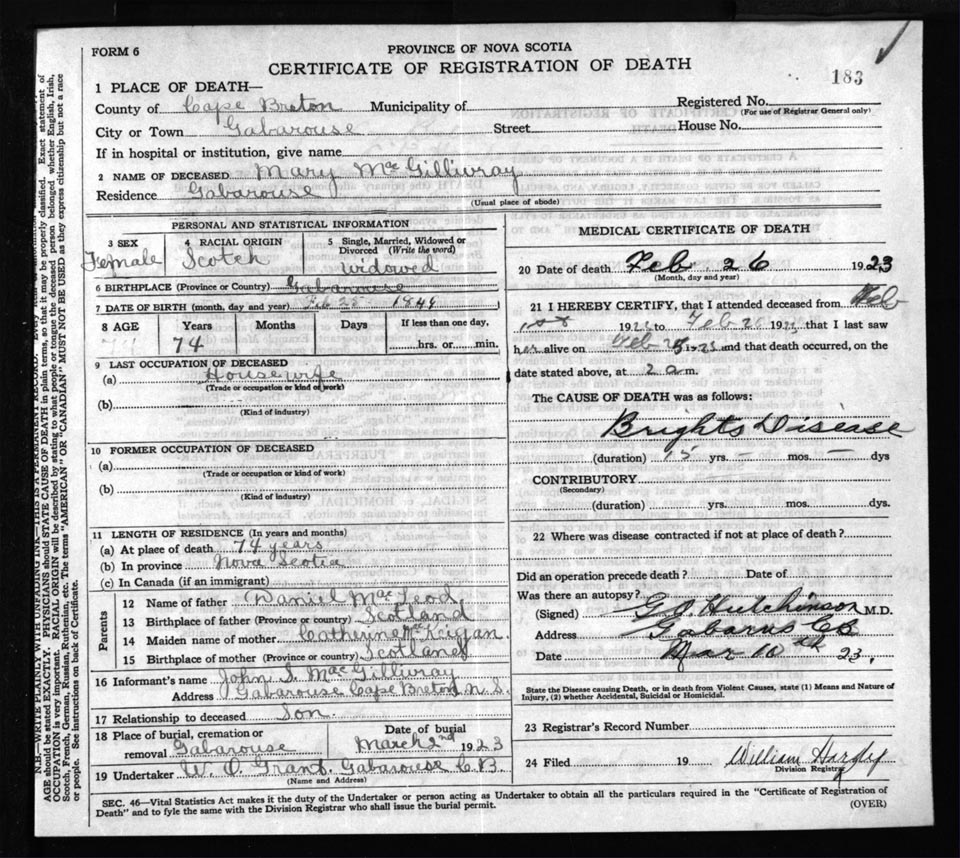 FORM 6
PROVINCE OF NOVA SCOTIA
CERTIFICATE OF REGISTRATION OF DEATH
183
1 PLACE OF DEATH—
County of Cape Breton Municipality of
Registered No.
(For use of Registrar General only)
City or Town Gabarouse Street House No.
If in hospital or institution, give name
2 NAME OF DECEASED Mary McGillivray
Residence Gabarouse
(Usual place of abode)
PERSONAL AND STATISTICAL INFORMATION
3 SEX
Female
4 RACIAL ORIGIN
Scotch
5 Single, Married, Widowed or
Divorced (Write the word)
widowed
6 BIRTHPLACE (Province or Country) Gabarouse
7 DATE OF BIRTH (month, day and year) Feb 28
8 AGE
Years
74
Months
Days
If less than one day,
hrs. or min.
9 LAST OCCUPATION OF DECEASED
(a) Housewife
(Trade or occupation or kind of work)
(b)
(Kind of industry)
10 FORMER OCCUPATION OF DECEASED
(a)
(Trade or occupation or kind of work)
(b)
(Kind of industry)
11 LENGTH OF RESIDENCE (In years and months)
(a) At place of death 74 years
(b) In province Nova Scotia
(c) In Canada (if an immigrant)
Parents
12 Name of father Daniel MacLeod
13 Birthplace of father (Province or country) Scotland
14 Maiden name of mother Catherine
15 Birthplace of mother (Province or country) Scotland
16 Informant's name John S. MacGillivray
Address Gabarouse Cape Breton N. S.
17 Relationship to deceased Son.
18 Place of burial, cremation or
removal Gabarouse
Date of burial
March 2nd 1923
19 Undertaker W. O. Grant. Gabarouse C.B.
(Name and Address)
MEDICAL CERTIFICATE OF DEATH
20 Date of death Feb 26 1923
(Month, day and year)
21 I HEREBY CERTIFY, that I attended deceased from Feb
1st 1923 to Feb 1923 that I last saw
her alive on Feb 1923 and that death occurred, on the
date stated above, at 2 a m.
The CAUSE OF DEATH was as follows:
Brights Disease
(duration) 15 yrs. — mos. — dys
CONTRIBUTORY
(Secondary)
(duration) yrs. mos. dys.
22 Where was disease contracted if not at place of death?
Did an operation precede death? Date of
Was there an autopsy?
(Signed) G. O. Hutchinson M.D.
Address Gabarus CB
Date Mar 10th 23.
State the Disease causing Death, or in death from Violent Causes, state (1) Means and Nature of
Injury, (2) whether Accidental, Suicidal or Homicidal.
23 Registrar's Record Number
24 Filed 19 William
Division Registrar
SEC. 46—Vital Statistics Act makes it the duty of the Undertaker or person acting as Undertaker to obtain all the particulars required in the "Certificate of Registration of
Death" and to fyle the same with the Division Registrar who shall issue the burial permit.
(OVER)
N.B.—WRITE PLAINLY WITH UNFADING INK—THIS IS A PERMANENT RECORD.
AGE should be stated EXACTLY. PHYSICIANS should STATE CAUSE OF DEATH in plain terms, so that it may be properly classified. Exact statement of
OCCUPATION is very important. RACIAL ORIGIN will be described by stating to what people or tongue the deceased person belonged whether English, Irish,
Scotch, French, German, Russian, Ruthenian, etc. The terms "AMERICAN" OR "CANADIAN" MUST NOT BE USED as they express citizenship but not a race
or people. See instructions on back of Certificate.